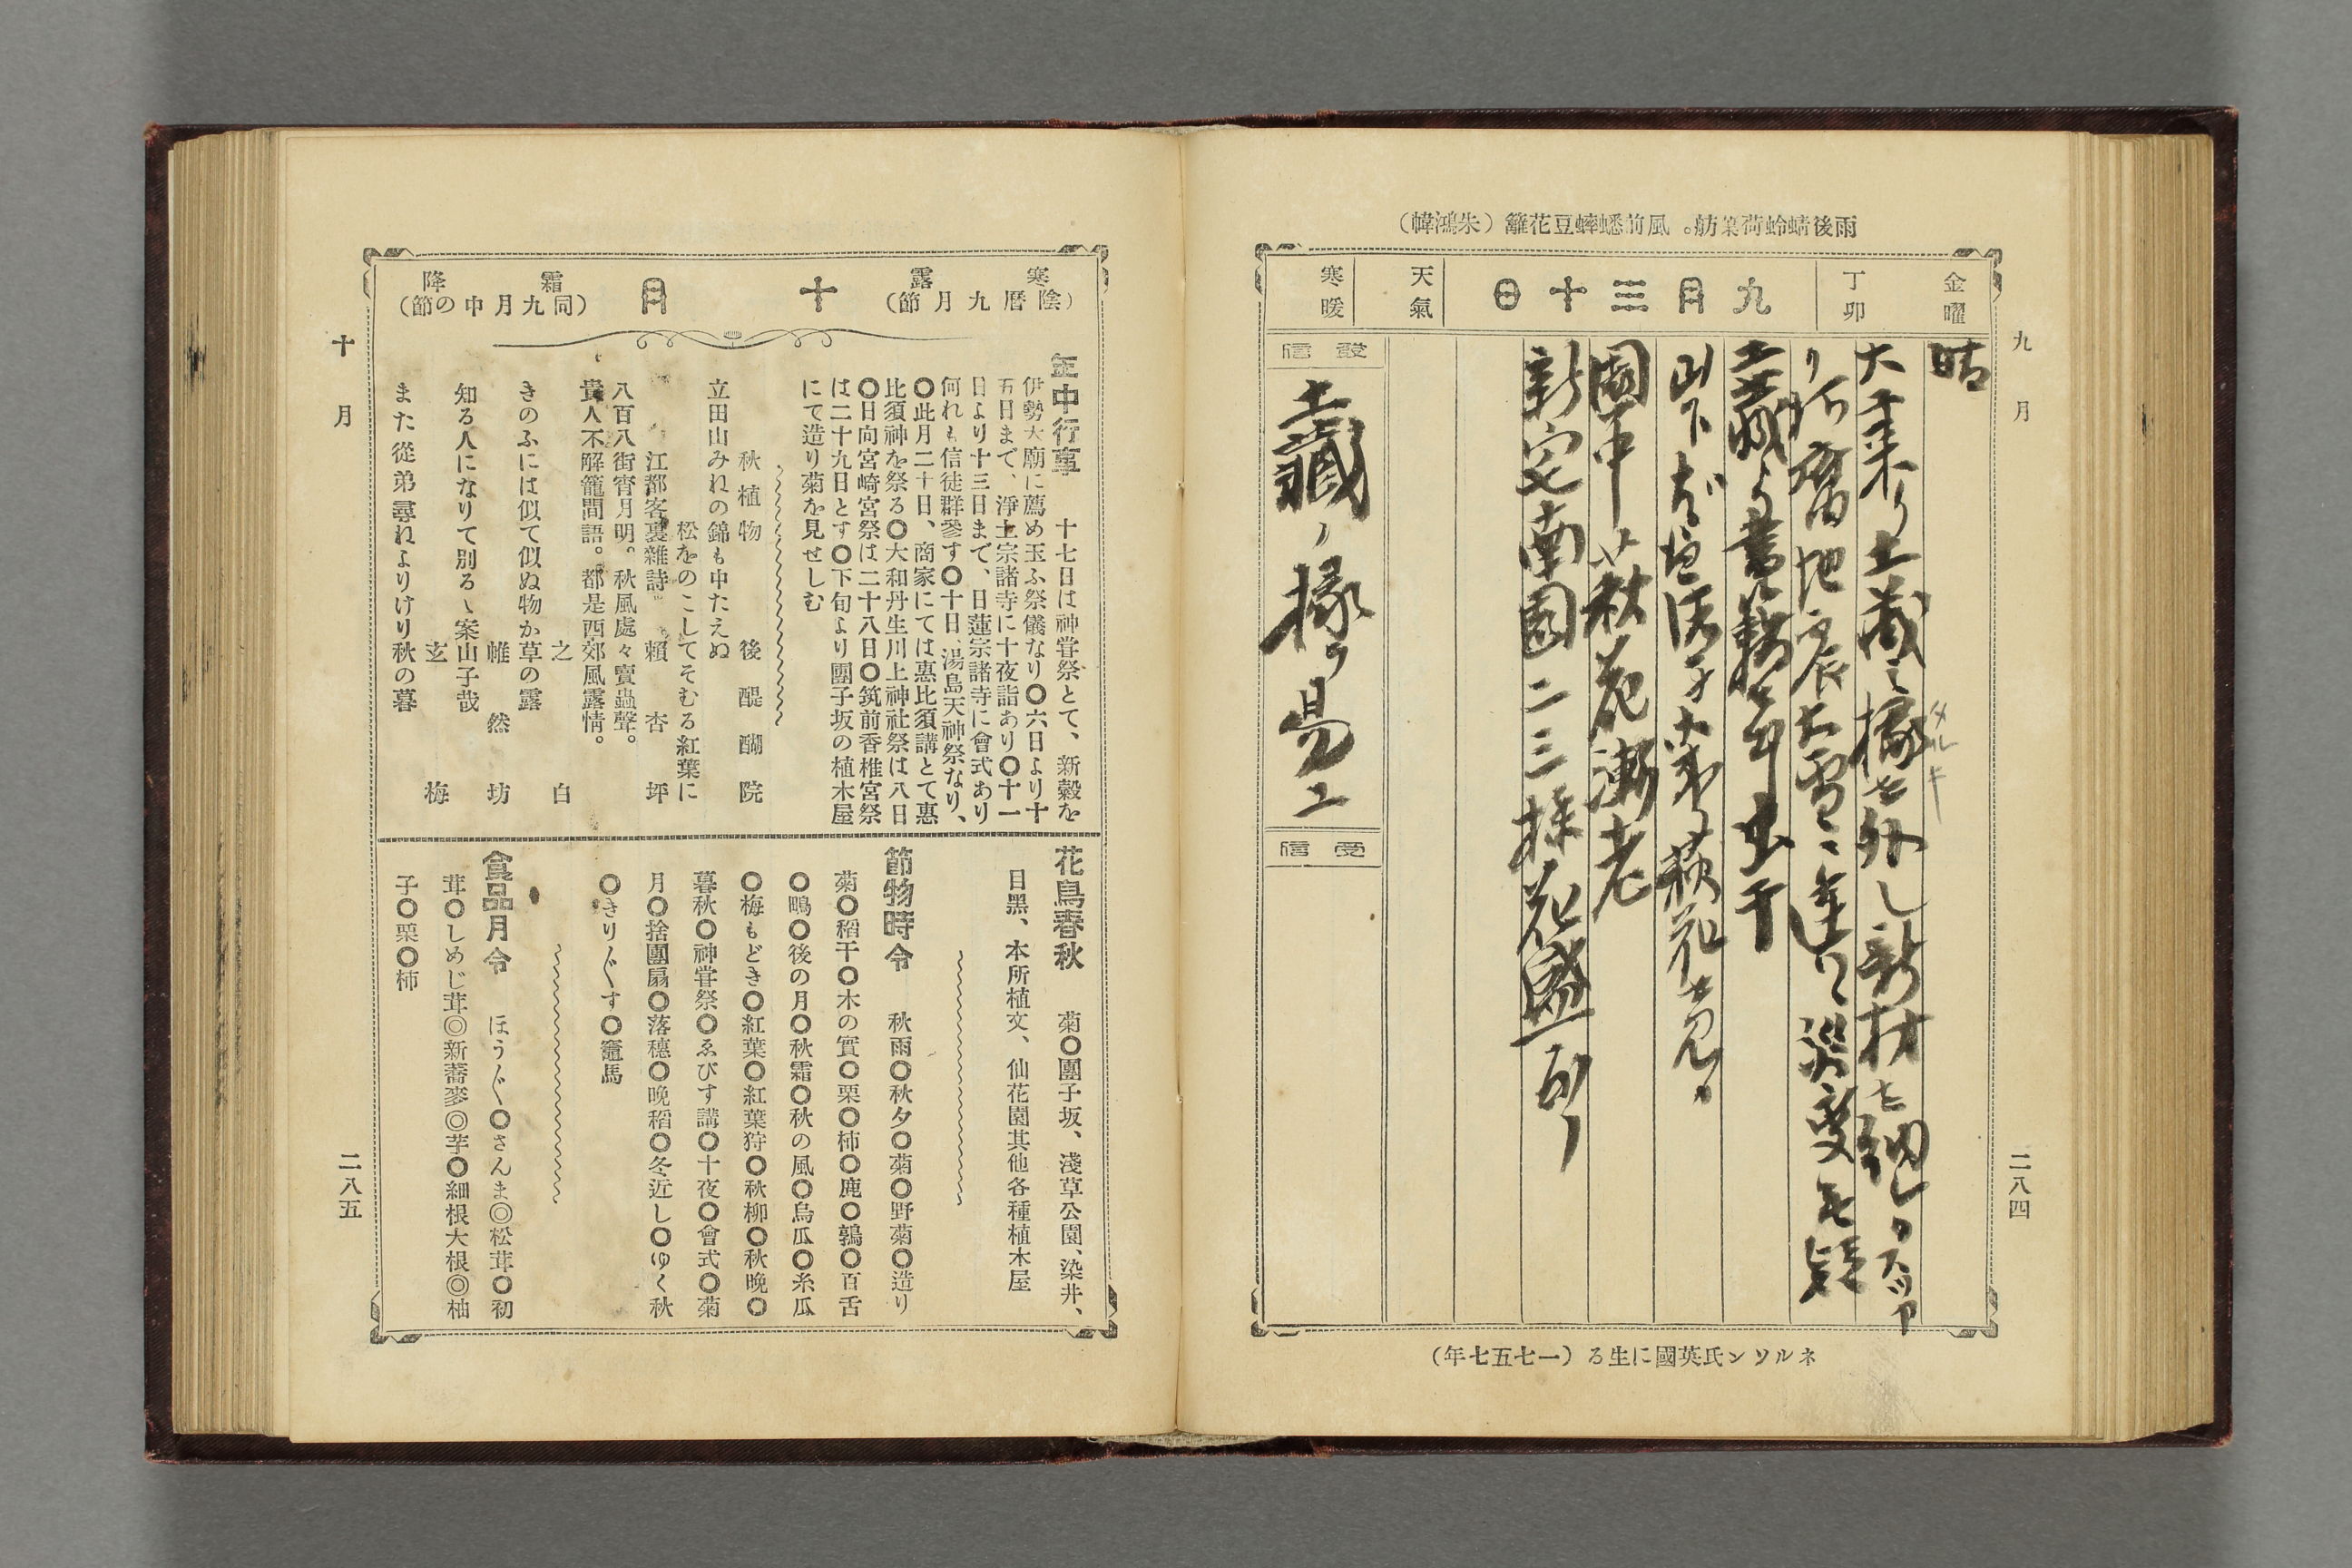 雨後蜻蛉荷葉舫。風前蟋蟀豆花籬（朱鴻幃）
九月
二八四
金曜
丁卯
九月三十日
天氣
寒暖
晴
大工来り土蔵之椽を外し新材を納
地震大雪ニ逢ハヾ災変も疑
土蔵
山下
園中ノ萩花漸老
新宅南園二三株花盛
發信
土蔵ノ椽ヲ易ユ
受信
ネルソン氏英國に生る（一七五七年）
十月
二八五
寒露（陰暦九月節）
十月
霜降（同九月中の節）
年中行事　十七日は神甞祭とて、新穀を
伊勢大廟に薦め玉ふ祭儀なり〇六日より十
五日まで、淨土宗諸寺に十夜詣あり〇十一
日より十三日まで、日蓮宗諸寺に會式あり
何れも信徒群參す〇十日、湯島天神祭なり、
〇此月二十日、商家にては惠比須講とて惠
比須神を祭る〇大和丹生川上神社祭は八日
〇日向宮崎宮祭は二十八日〇筑前香椎宮祭
は二十九日とす〇下旬より團子坂の植木屋
にて造り菊を見せしむ
秋植物　後醍醐院
立田山みねの錦も中たえぬ
松をのこしてそむる紅葉に
江都客裏雜詩　賴杏坪
八百八街宵月明。秋風處々賣蟲聲。
貴人不解籠間語。都是西郊風露情。
之白
きのふには似て似ぬ物か草の露
帷然坊
知る人になりて別るゝ案山子哉
玄梅
また從弟尋ねよりけり秋の暮
花鳥春秋　菊〇團子坂、淺草公園、染井、
目黑、本所植文、仙花園其他各種植木屋
節物時令　秋雨〇秋夕〇菊〇野菊〇造り
菊〇稻干〇木の實〇栗〇柿〇鹿〇鶉〇百舌
〇鴫〇後の月〇秋霜〇秋の風〇烏瓜〇糸瓜
〇梅もどき〇紅葉〇紅葉狩〇秋柳〇秋晩〇
暮秋〇神甞祭〇ゑびす講〇十夜〇會式〇菊
月〇捨團扇〇落穗〇晩稻〇冬近し〇ゆく秋
〇きり〲す〇竈馬
食品月令　ほう〲〇さんま◎松茸〇初
茸〇しめじ茸◎新蕎麥◎芋〇細根大根◎柚
子〇栗〇柿